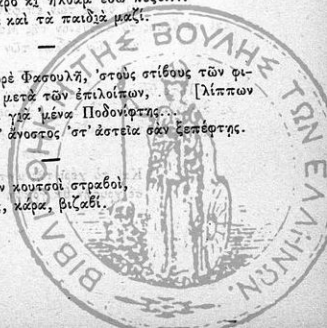 καὶ τὰ παιδιὰ μαζί.
Φασουλῆ, 'στοὺς στίβους τῶν φι-
μετὰ τῶν ἐπιλοίπων, [λίππων
γιὰ 'μένα Ποδονίφτης...
ἄνοστος 'στ' ἀστεῖα σὰν ξεπέφτης.
κουτσοὶ στραβοί,
κάρα, βιζαβί.
ΒΙΒΛΙΟΘΗΚΗ ΤΗΣ ΒΟΥΛΗΣ ΤΩΝ ΕΛΛΗΝΩΝ